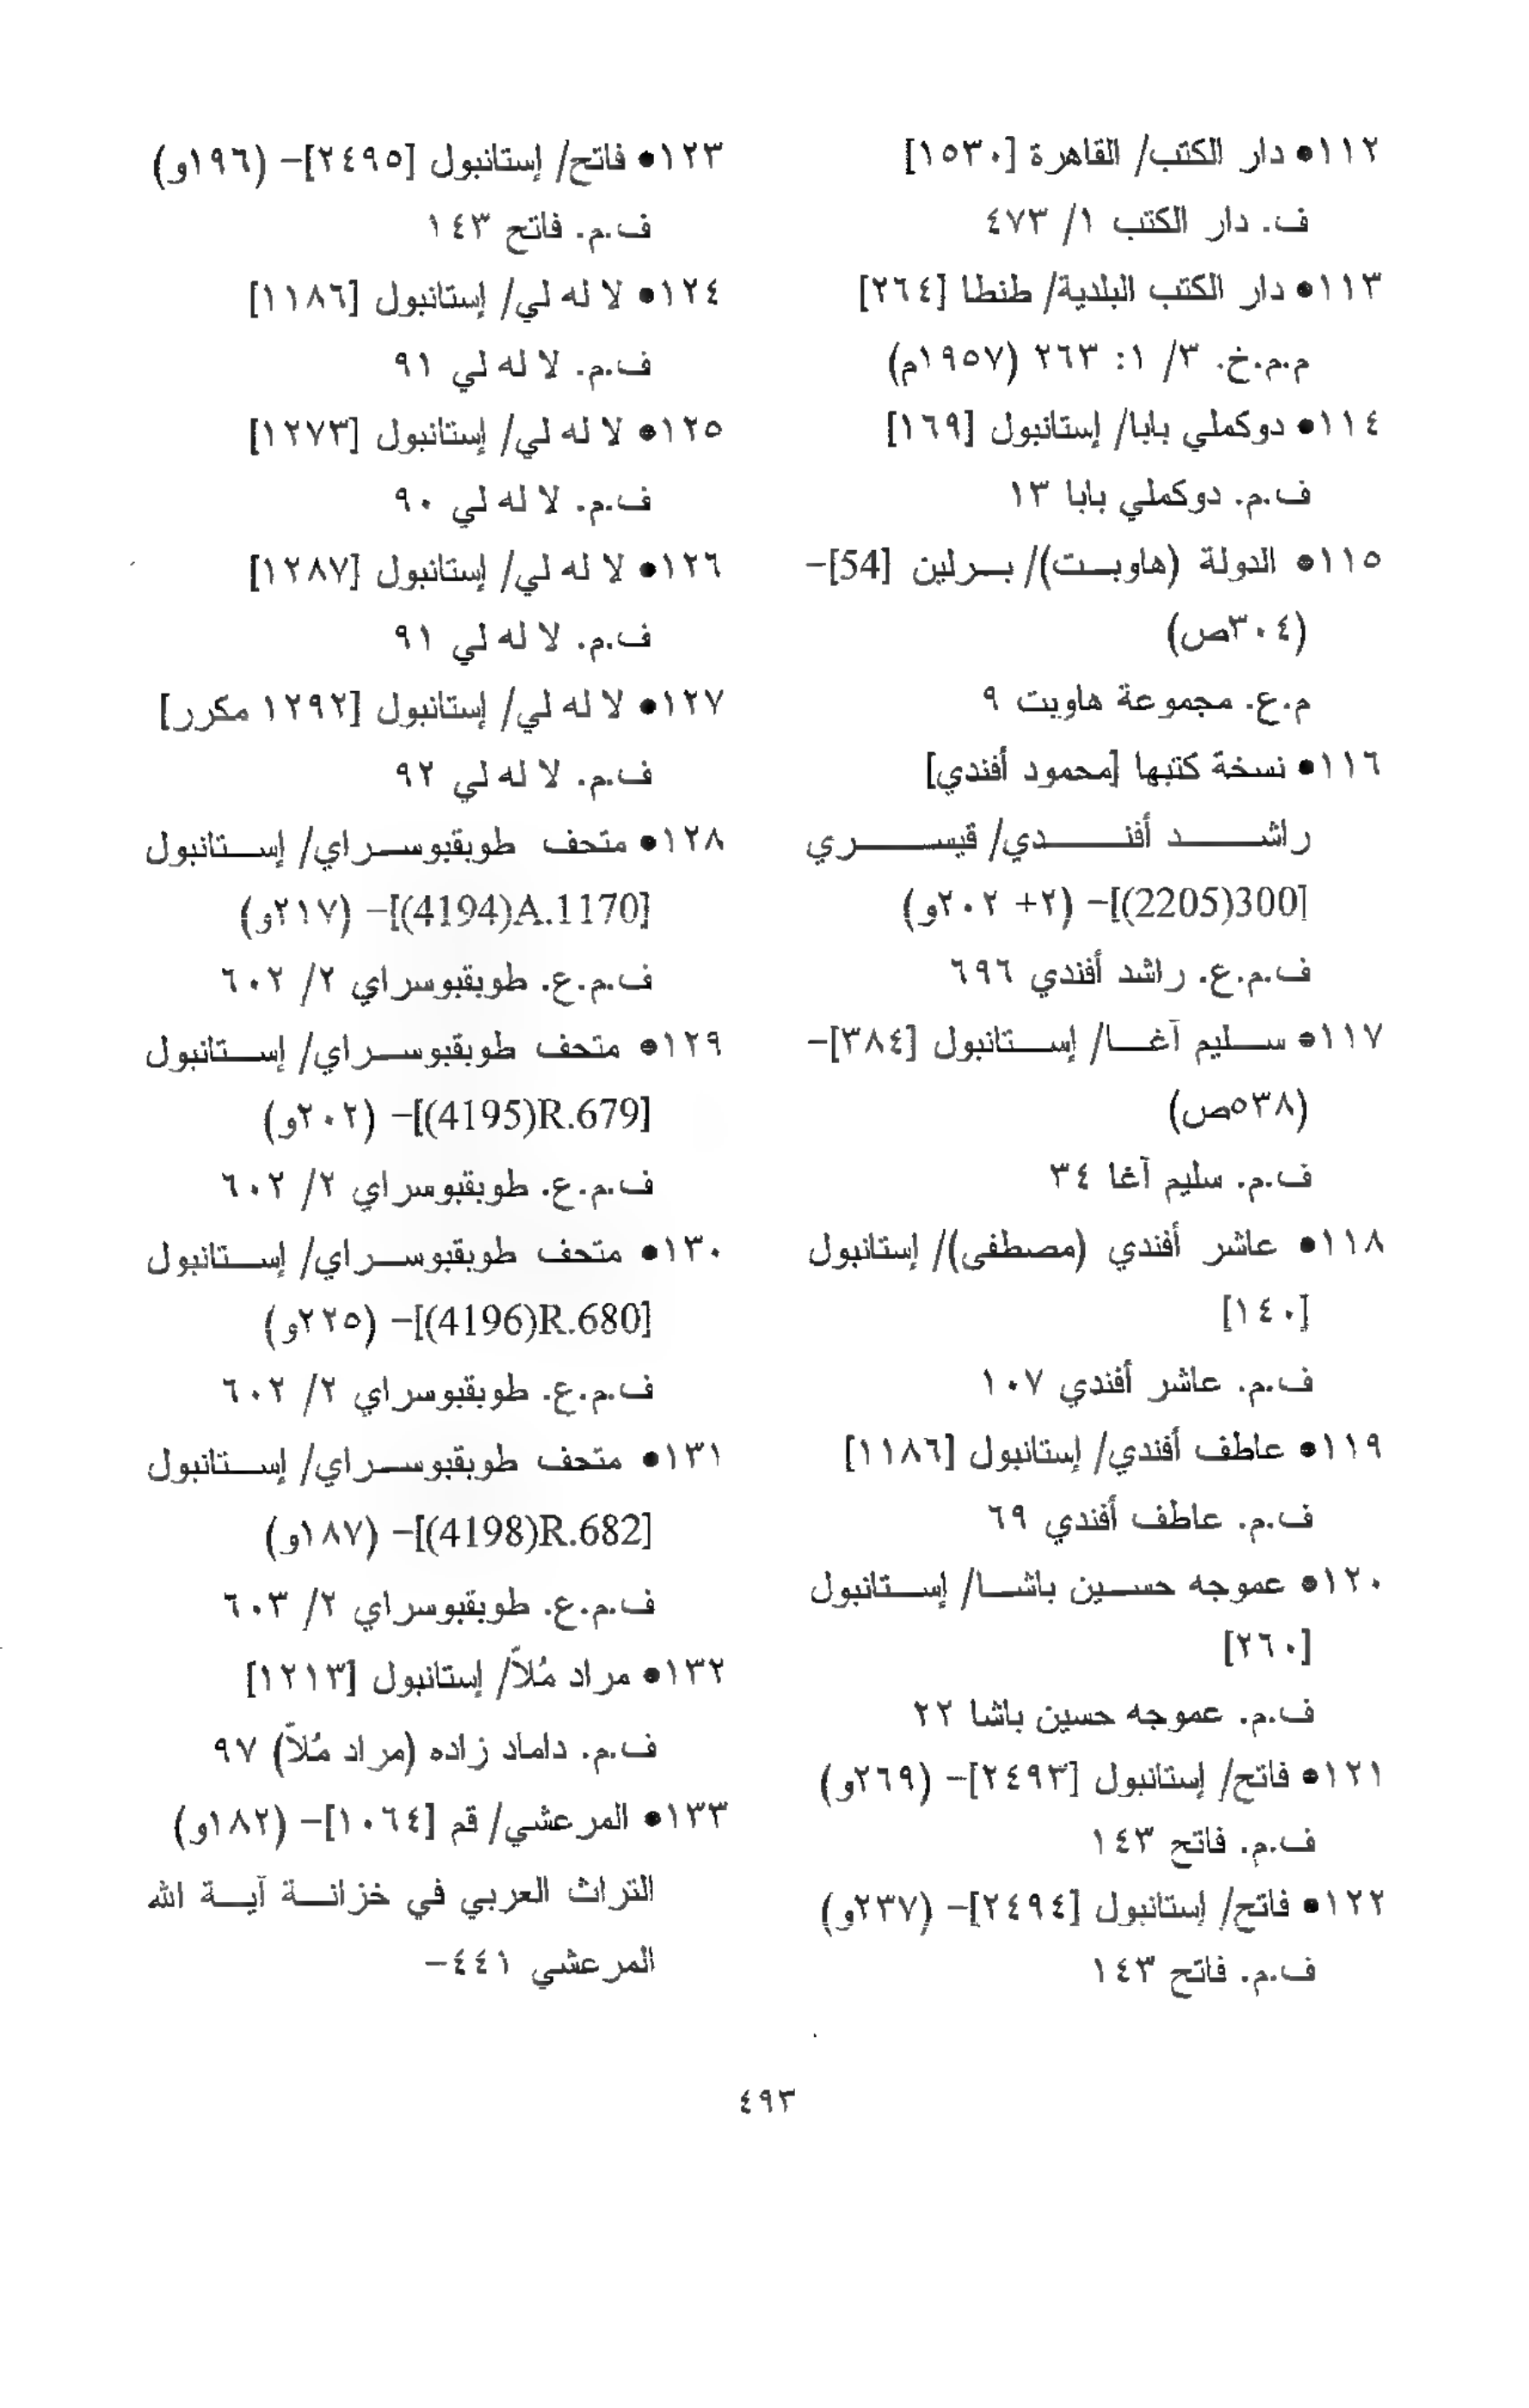 ١١٢• دار الكتب/ القاهرة [١٥٣٠]
ف. دار الكتب ١/ ٤٧٣
١١٣• دار الكتب البلدية/ طنطا [٢٦٤]
م.م.خ. ٣/ ١: ٢٦٣ (١٩٥٧م)
١١٤• دوكملي بابا/ إستانبول [١٦٩]
ف.م. دوكملي بابا ١٣
١١٥• الدولة (هاوبت)/ برلين [54]-
(٣٠٤ص)
م.ع. مجموعة هاوبت ٩
١١٦• نسخة كتبها [محمود أفندي]
راشد أفندي/ قيسري
[300(2205)]- (٢+ ٢٠٢و)
ف.م.ع. راشد أفندي ٦٩٦
١١٧• سليم آغا/ إستانبول [٣٨٤]-
(٥٣٨ص)
ف.م. سليم آغا ٣٤
١١٨• عاشر أفندي (مصطفى)/ إستانبول
[١٤٠]
ف.م. عاشر أفندي ١٠٧
١١٩• عاطف أفندي/ إستانبول [١١٨٦]
ف.م. عاطف أفندي ٦٩
١٢٠• عموجه حسين باشا/ إستانبول
[٢٦٠]
ف.م. عموجه حسين باشا ٢٢
١٢١• فاتح/ إستانبول [٢٤٩٣]- (٢٦٩و)
ف.م. فاتح ١٤٣
١٢٢• فاتح/ إستانبول [٢٤٩٤]- (٢٣٧و)
ف.م. فاتح ١٤٣
١٢٣• فاتح/ إستانبول [٢٤٩٥]- (١٩٦و)
ف.م. فاتح ١٤٣
١٢٤• لا له لي/ إستانبول [١١٨٦]
ف.م. لا له لي ٩١
١٢٥• لا له لي/ إستانبول [١٢٧٣]
ف.م. لا له لي ٩٠
١٢٦• لا له لي/ إستانبول [١٢٨٧]
ف.م. لا له لي ٩١
١٢٧• لا له لي/ إستانبول [١٢٩٢ مكرر]
ف.م. لا له لي ٩٢
١٢٨• متحف طوبقبوسراي/ إستانبول
[A.1170(4194)]- (٢١٧و)
ف.م.ع. طوبقبوسراي ٢/ ٦٠٢
١٢٩• متحف طوبقبوسراي/ إستانبول
[R.679(4195)]- (٢٠٢و)
ف.م.ع. طوبقبوسراي ٢/ ٦٠٢
١٣٠• متحف طوبقبوسراي/ إستانبول
[R.680(4196)]- (٢٢٥و)
ف.م.ع. طوبقبوسراي ٢/ ٦٠٢
١٣١• متحف طوبقبوسراي/ إستانبول
[R.682(4198)]- (١٨٧و)
ف.م.ع. طوبقبوسراي ٢/ ٦٠٣
١٣٢• مراد مُلاّ/ إستانبول [١٢١٣]
ف.م. داماد زاده (مراد مُلاّ) ٩٧
١٣٣• المرعشي/ قم [١٠٦٤]- (١٨٢و)
التراث العربي في خزانة آية الله
المرعشي ٤٤١-
٤٩٣